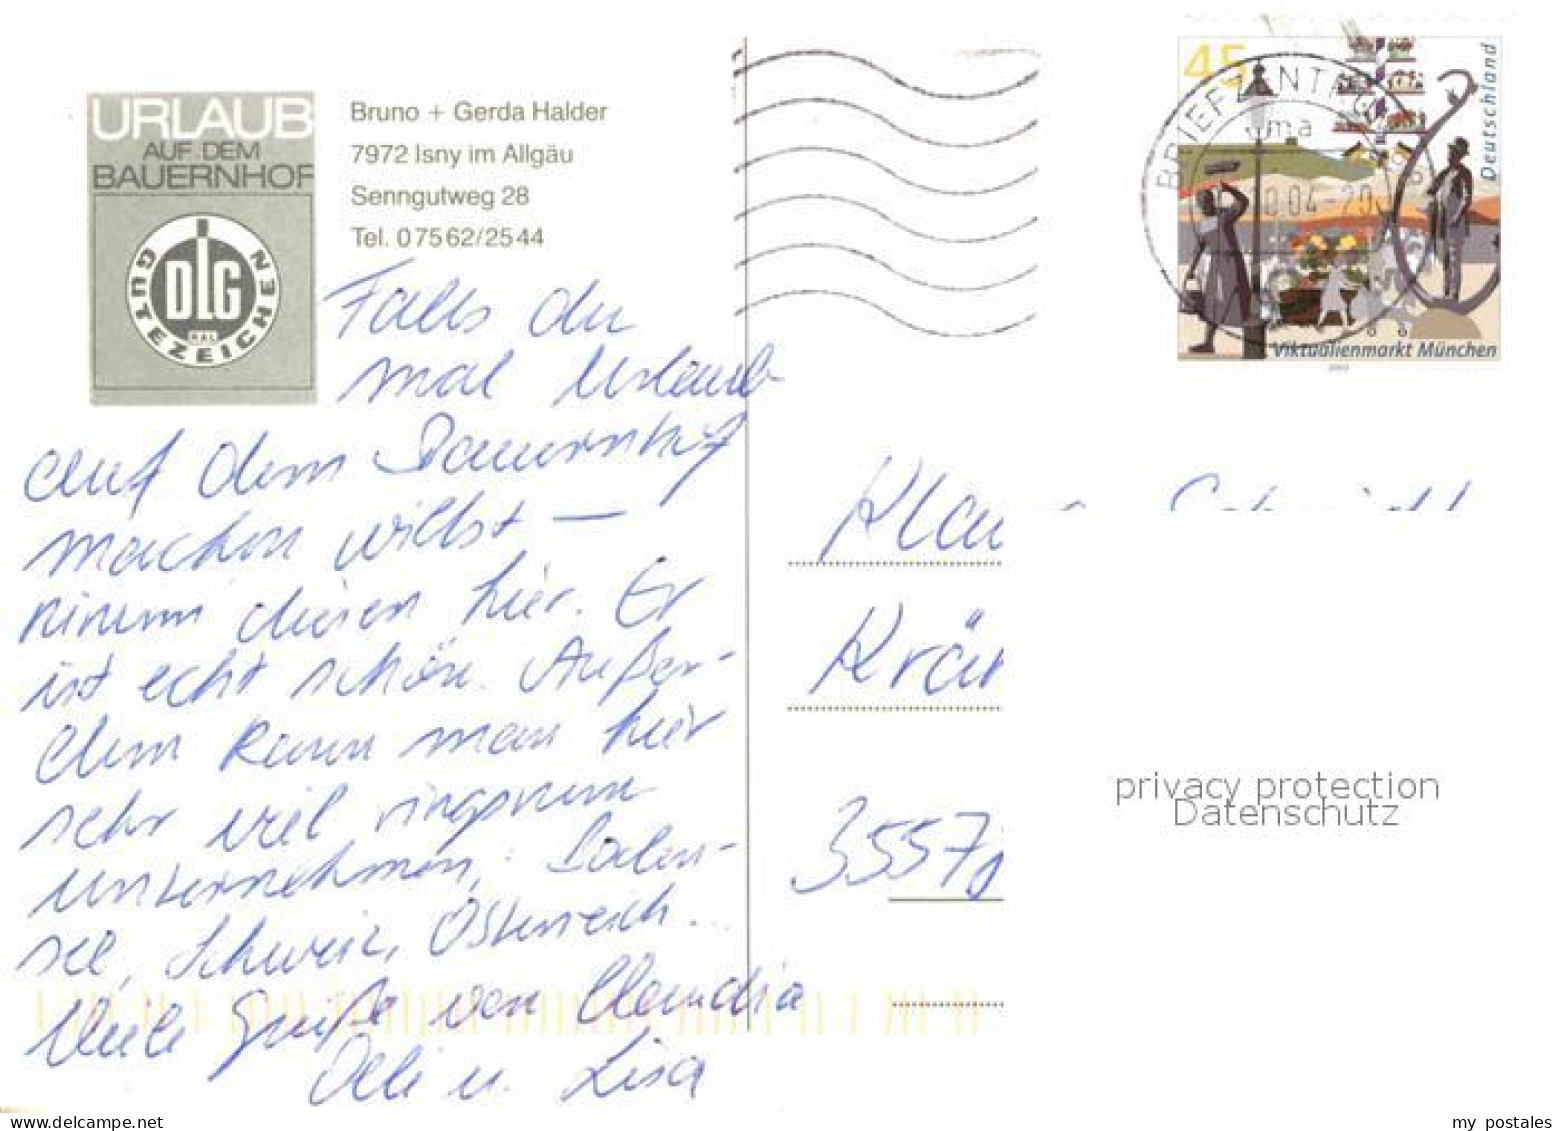 URLAUB
AUF DEM
BAUERNHOF
DLG
GÜTEZEICHEN
Bruno + Gerda Halder
7972 Isny im Allgäu
Senngutweg 28
Tel. 07562/2544
Falls du
mal Urlaub
auf dem Bauernhof
machen willst –
nimm diesen hier. Er
ist echt schön. Außer-
dem kann man hier
sehr viel ringsrum
unternehmen, Boden-
see, Schweiz, Österreich...
Viele Grüße von Claudia
u. Lisa
45
Deutschland
Viktualienmarkt München
BRIEFZENTRUM
Klau
Krä
3557
privacy protection
Datenschutz
my postales